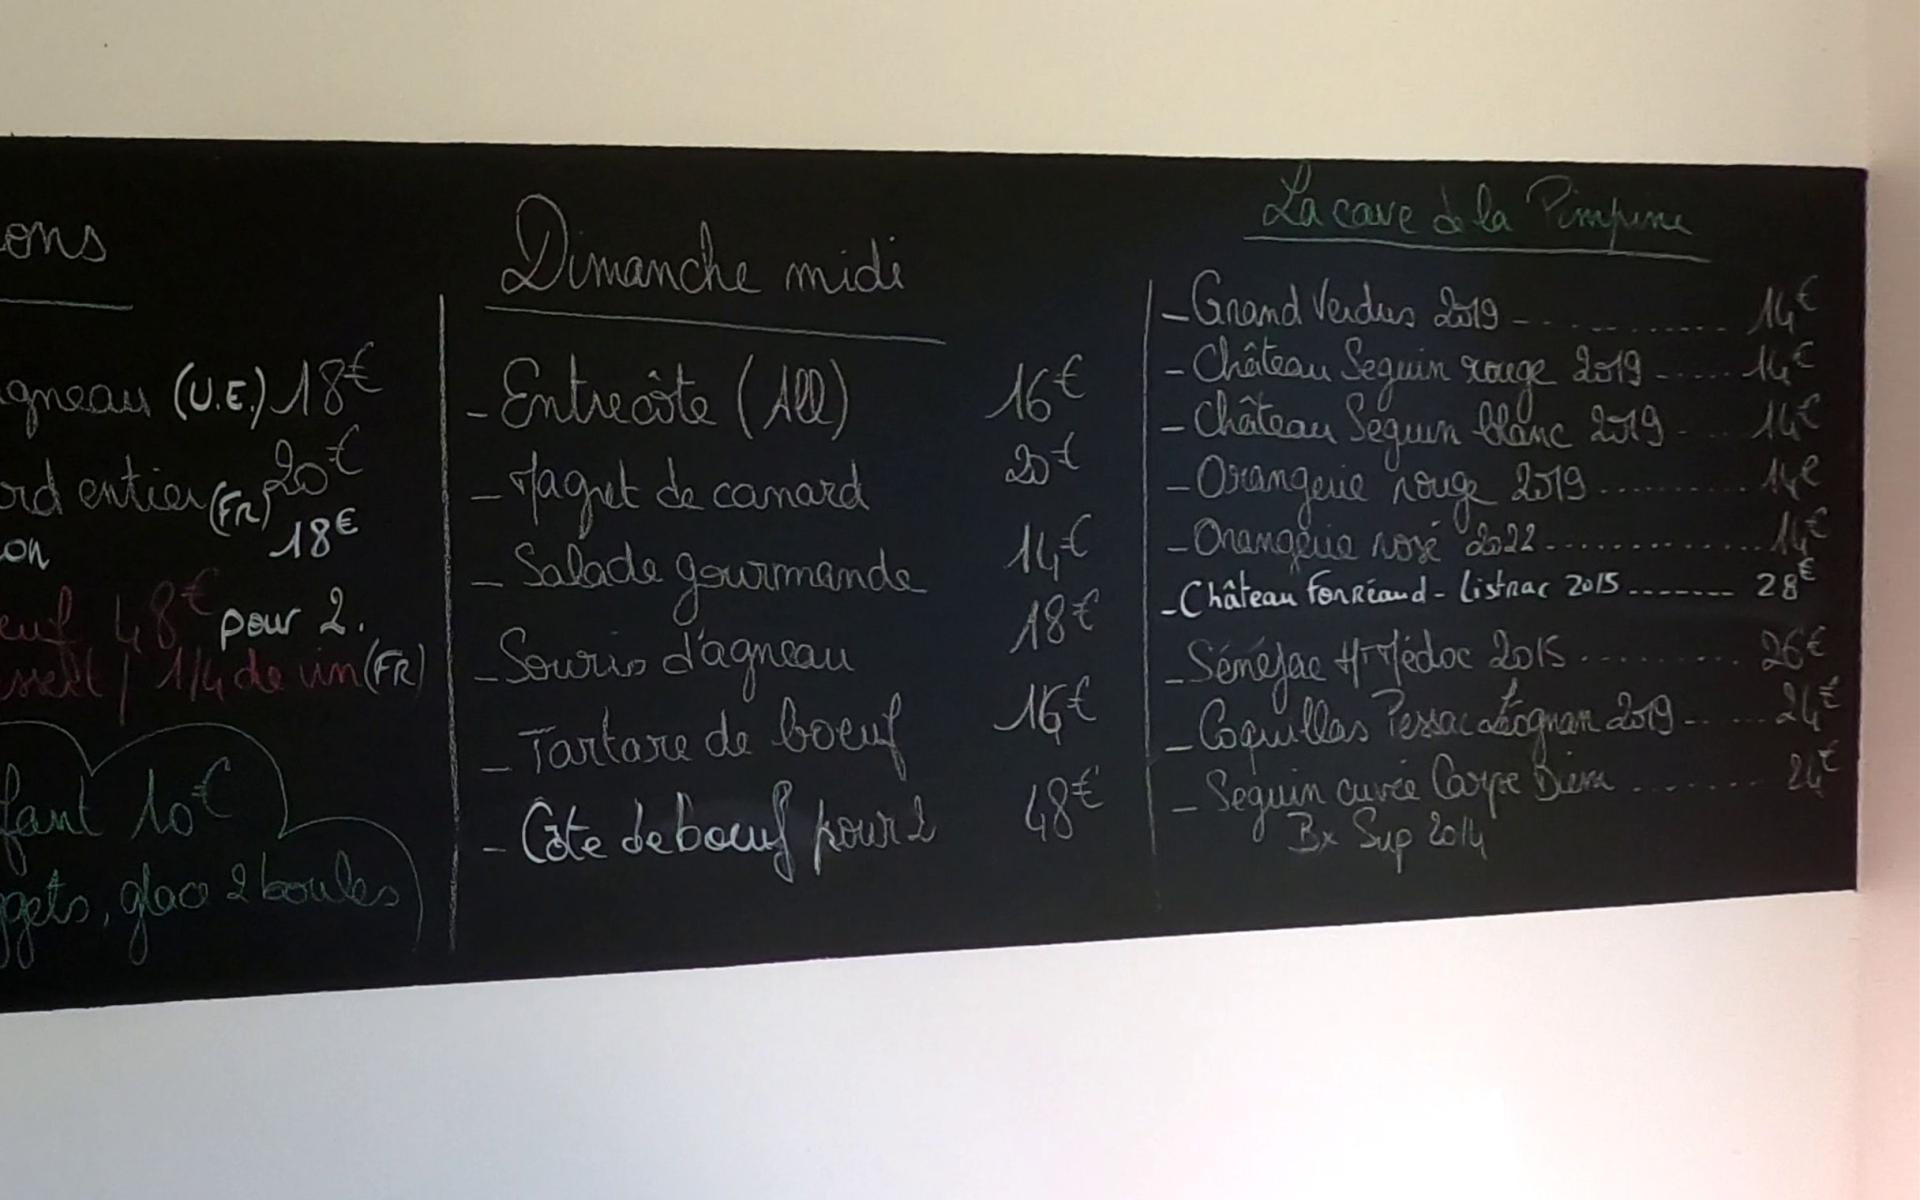 ons
agneau (U.E.) 18€
ord entier (FR) 20€
on 18€
euf 48€ pour 2.
ssert / 1/4 de vin (FR)
fant 10€
ggets, glace 2 boules
Dimanche midi
- Entrecôte (All) 16€
- Magret de canard 20€
- Salade gourmande 14€
- Souris d'agneau 18€
- Tartare de boeuf 16€
- Côte de boeuf pour 2 48€
La cave de la Pimpine
- Grand Verdus 2019 - ........... 14€
- Château Seguin rouge 2019 ...... 14€
- Château Seguin blanc 2019 - 14€
- Orangerie rouge 2019 .......... 14€
- Orangerie rosé 2022 ............. 14€
- Château Fonréaud - Listrac 2015 ------- 28€
- Sénéjac Ht Médoc 2015 .......... 26€
- Coquillas Pessac Léognan 2019 ..... 24€
- Seguin cuvée Carpe Diem ........ 24€
Bx Sup 2014